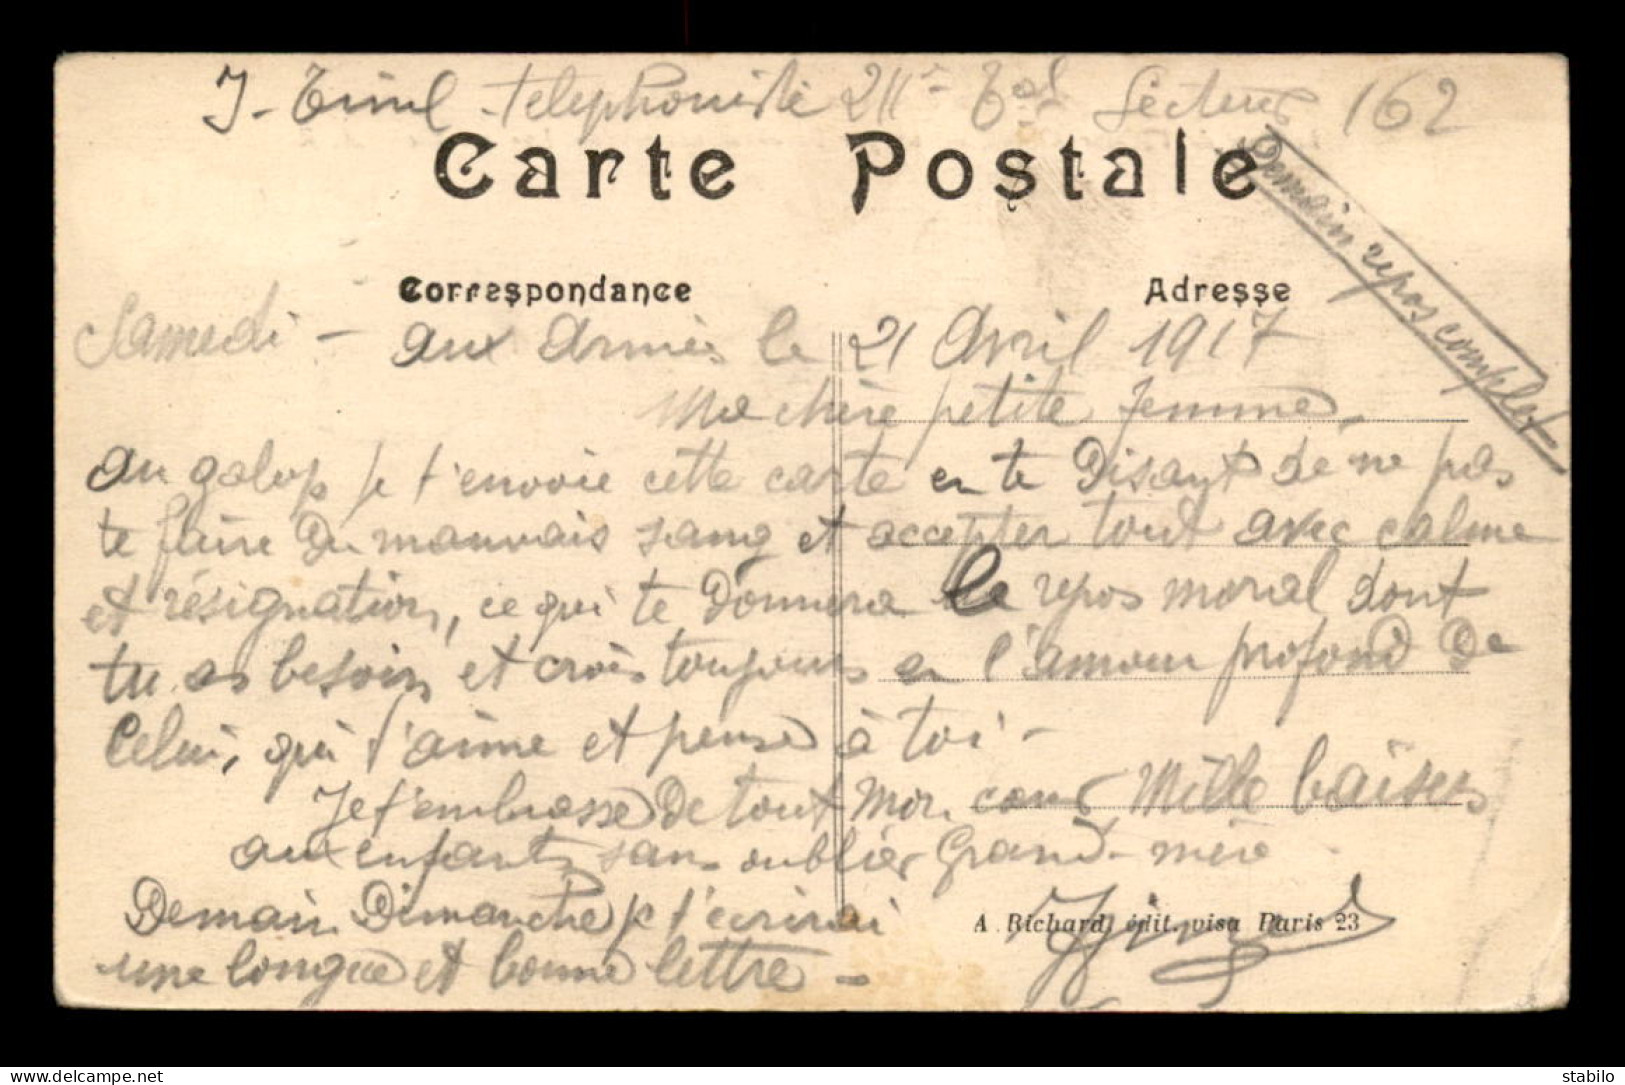 telephoniste 211e Tal Secteur 162
Carte Postale
Demain repos complet
Correspondance
Adresse
Samedi - aux Armées le 21 Avril 1917
Ma chère petite femme,
au galop je t'envoie cette carte en te Disant de ne pas
te faire Du mauvais sang et accepter tout avec calme
et résignation, ce qui te Donnera le repos moral dont
tu as besoin et crois toujours en l'amour profond De
Celui, qui t'aime et pense à toi -
Je t'embrasse De tout mon cœur Mille baisers
aux enfants sans oublier Grand-mère
Demain Dimanche je t'ecrirai
une longue et bonne lettre -
A. Richard, édit. visa Paris 23
stabilo